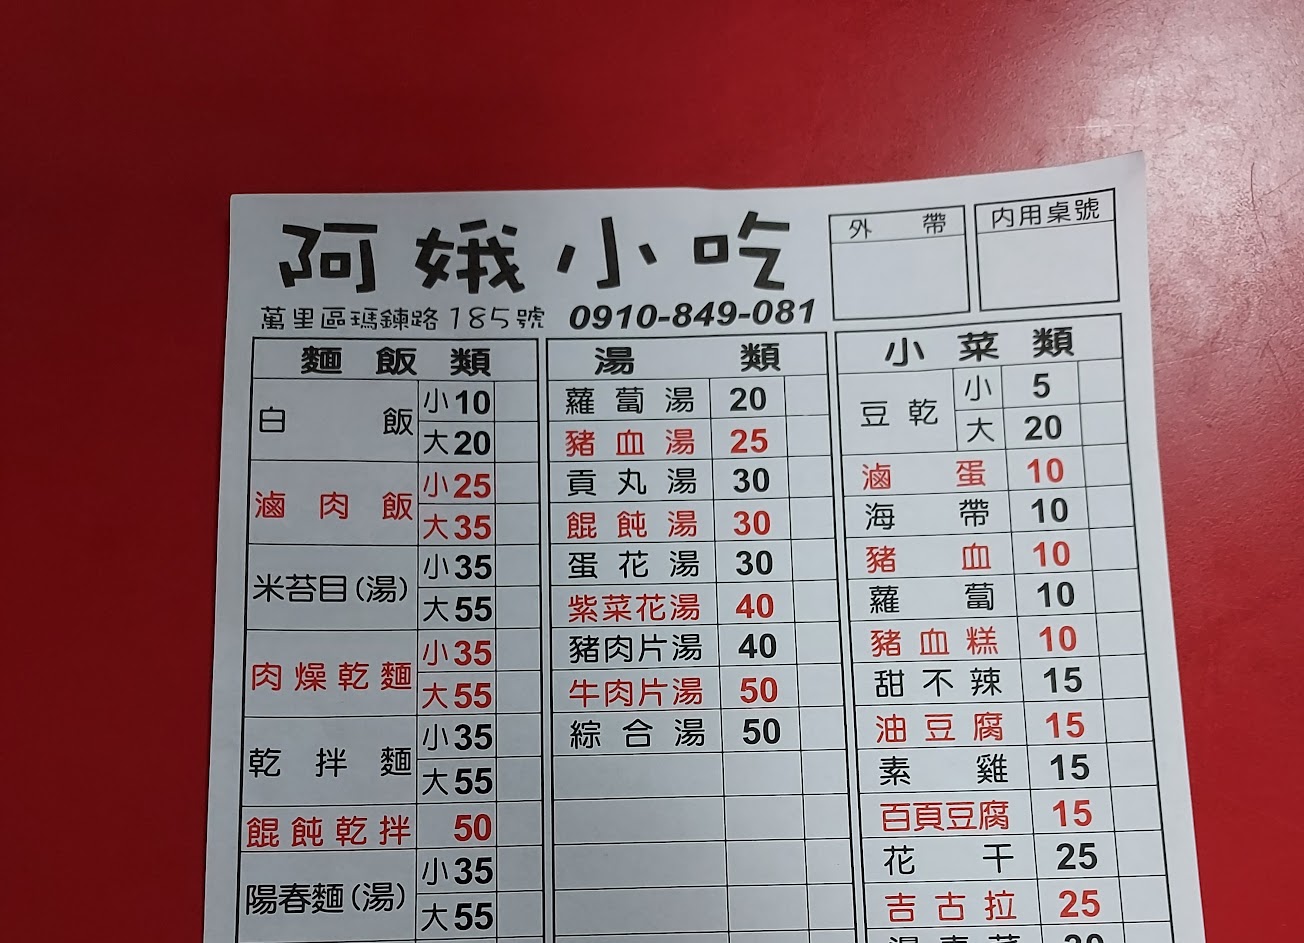 阿娥小吃
外帶
內用桌號
萬里區瑪鋉路185號 0910-849-081
麵飯類
白飯 小10
大20
滷肉飯 小25
大35
米苔目(湯) 小35
大55
肉燥乾麵 小35
大55
乾拌麵 小35
大55
餛飩乾拌 50
陽春麵(湯) 小35
大55
湯類
蘿蔔湯 20
豬血湯 25
貢丸湯 30
餛飩湯 30
蛋花湯 30
紫菜花湯 40
豬肉片湯 40
牛肉片湯 50
綜合湯 50
小菜類
豆乾 小 5
大 20
滷蛋 10
海帶 10
豬血 10
蘿蔔 10
豬血糕 10
甜不辣 15
油豆腐 15
素雞 15
百頁豆腐 15
花干 25
吉古拉 25